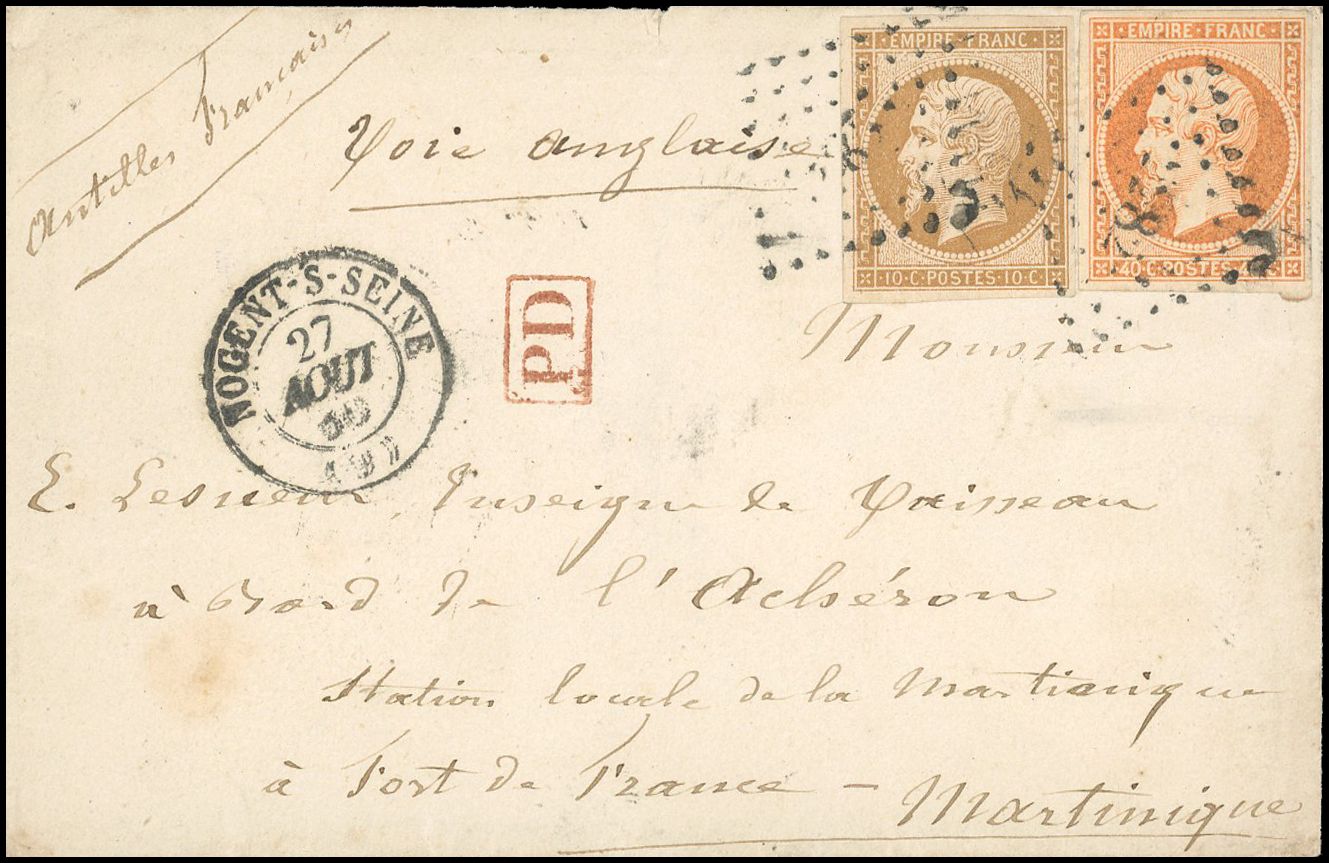 Antilles Françaises
Voie anglaise
EMPIRE · FRANC ·
10 · C · POSTES · 10 · C ·
EMPIRE · FRANC ·
40 · C · POSTES · 40
NOGENT-S-SEINE
27
AOUT
PD
Monsieur
E. Lesueur, Enseigne de Vaisseau
à Bord de l'Achéron
Station locale de la Martinique
à Fort de France – Martinique